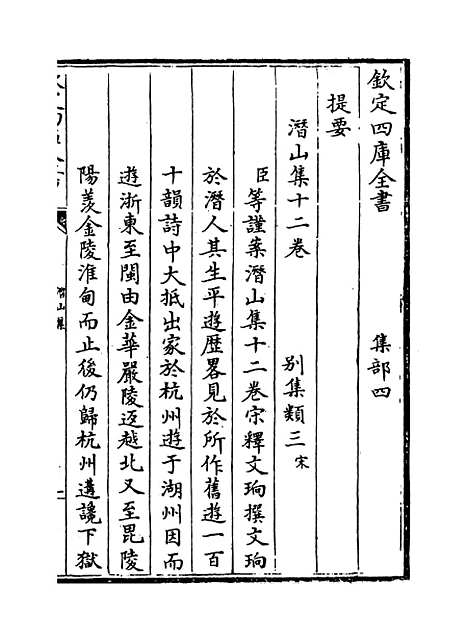 欽定四庫全書　集部四
提要
潛山集十二卷　别集類三宋
臣等謹案潛山集十二卷宋釋文珦撰文珦
於潛人其生平遊歴畧見於所作舊遊一百
十韻詩中大抵出家於杭州遊于湖州因而
遊浙東至閩由金華嚴陵返越北又至毘陵
陽羨金陵淮甸而止後仍歸杭州遘讒下獄
潛山集